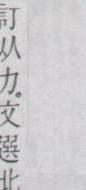 訂从力。文選北